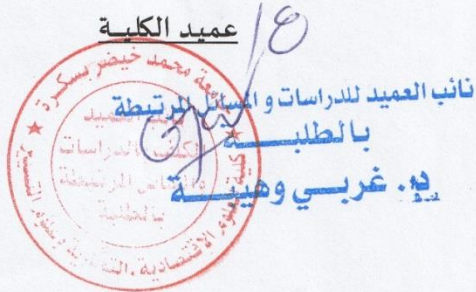 عميد الكلية
نائب العميد للدراسات و المسائل المرتبطة
بالطلبة
د. غربي وهيبة
جامعة محمد خيضر بسكرة
كلية العلوم الاقتصادية
نائب العميد
المكلف بالدراسات
والمسائل المرتبطة
بالطلبة